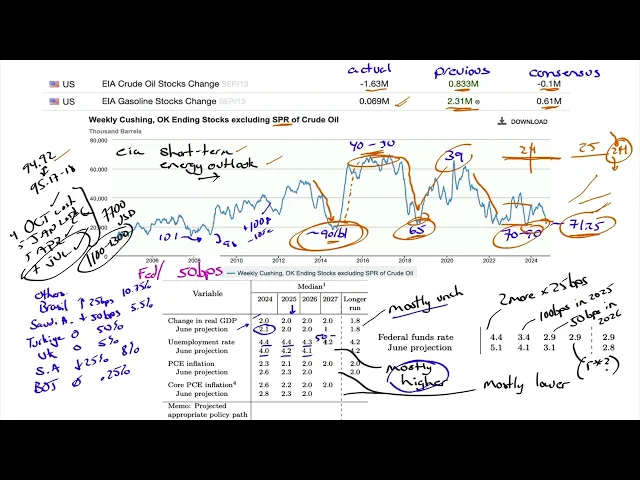 actual previous consensus
US EIA Crude Oil Stocks Change SEP/13 -1.63M 0.833M -0.1M
US EIA Gasoline Stocks Change SEP/13 0.069M 2.31M ® 0.61M
Weekly Cushing, OK Ending Stocks excluding SPR of Crude Oil
DOWNLOAD
Thousand Barrels
80,000
60,000
40,000
20,000
0
eia short-term
energy outlook
40-50
39
24 25 24
94.92
95.17-18
OCT
JUL
7700
USD
1100-1300
101
+100$
~90/bl
65
70-90
7125
2006 2008 2010 2012 2014 2016 2018 2020 2022 2024
Weekly Cushing, OK Ending Stocks excluding SPR of Crude Oil
Fed/ 50bps
Others
Brasil ↑ 25bps 10.75%
Saudi. A ↓ 50bps 5.5%
Turkiye 0 50%
UK 0 5%
S.A ↓ 25% 8%
BOJ 0 .25%
Median¹
Variable 2024 2025 2026 2027 Longer run
Change in real GDP 2.0 2.0 2.0 2.0 1.8
June projection 2.1 2.0 2.0 1.8
Unemployment rate 4.4 4.4 4.3 4.2 4.2
June projection 4.0 4.2 4.1 4.2
PCE inflation 2.3 2.1 2.0 2.0 2.0
June projection 2.6 2.3 2.0 2.0
Core PCE inflation⁴ 2.6 2.2 2.0 2.0
June projection 2.8 2.3 2.0
Memo: Projected
appropriate policy path
mostly unch
mostly
higher
mostly lower
2 more x 25bps
100bps in 2025
50bps in
2026
Federal funds rate 4.4 3.4 2.9 2.9 2.9
June projection 5.1 4.1 3.1 2.8
(r*?)